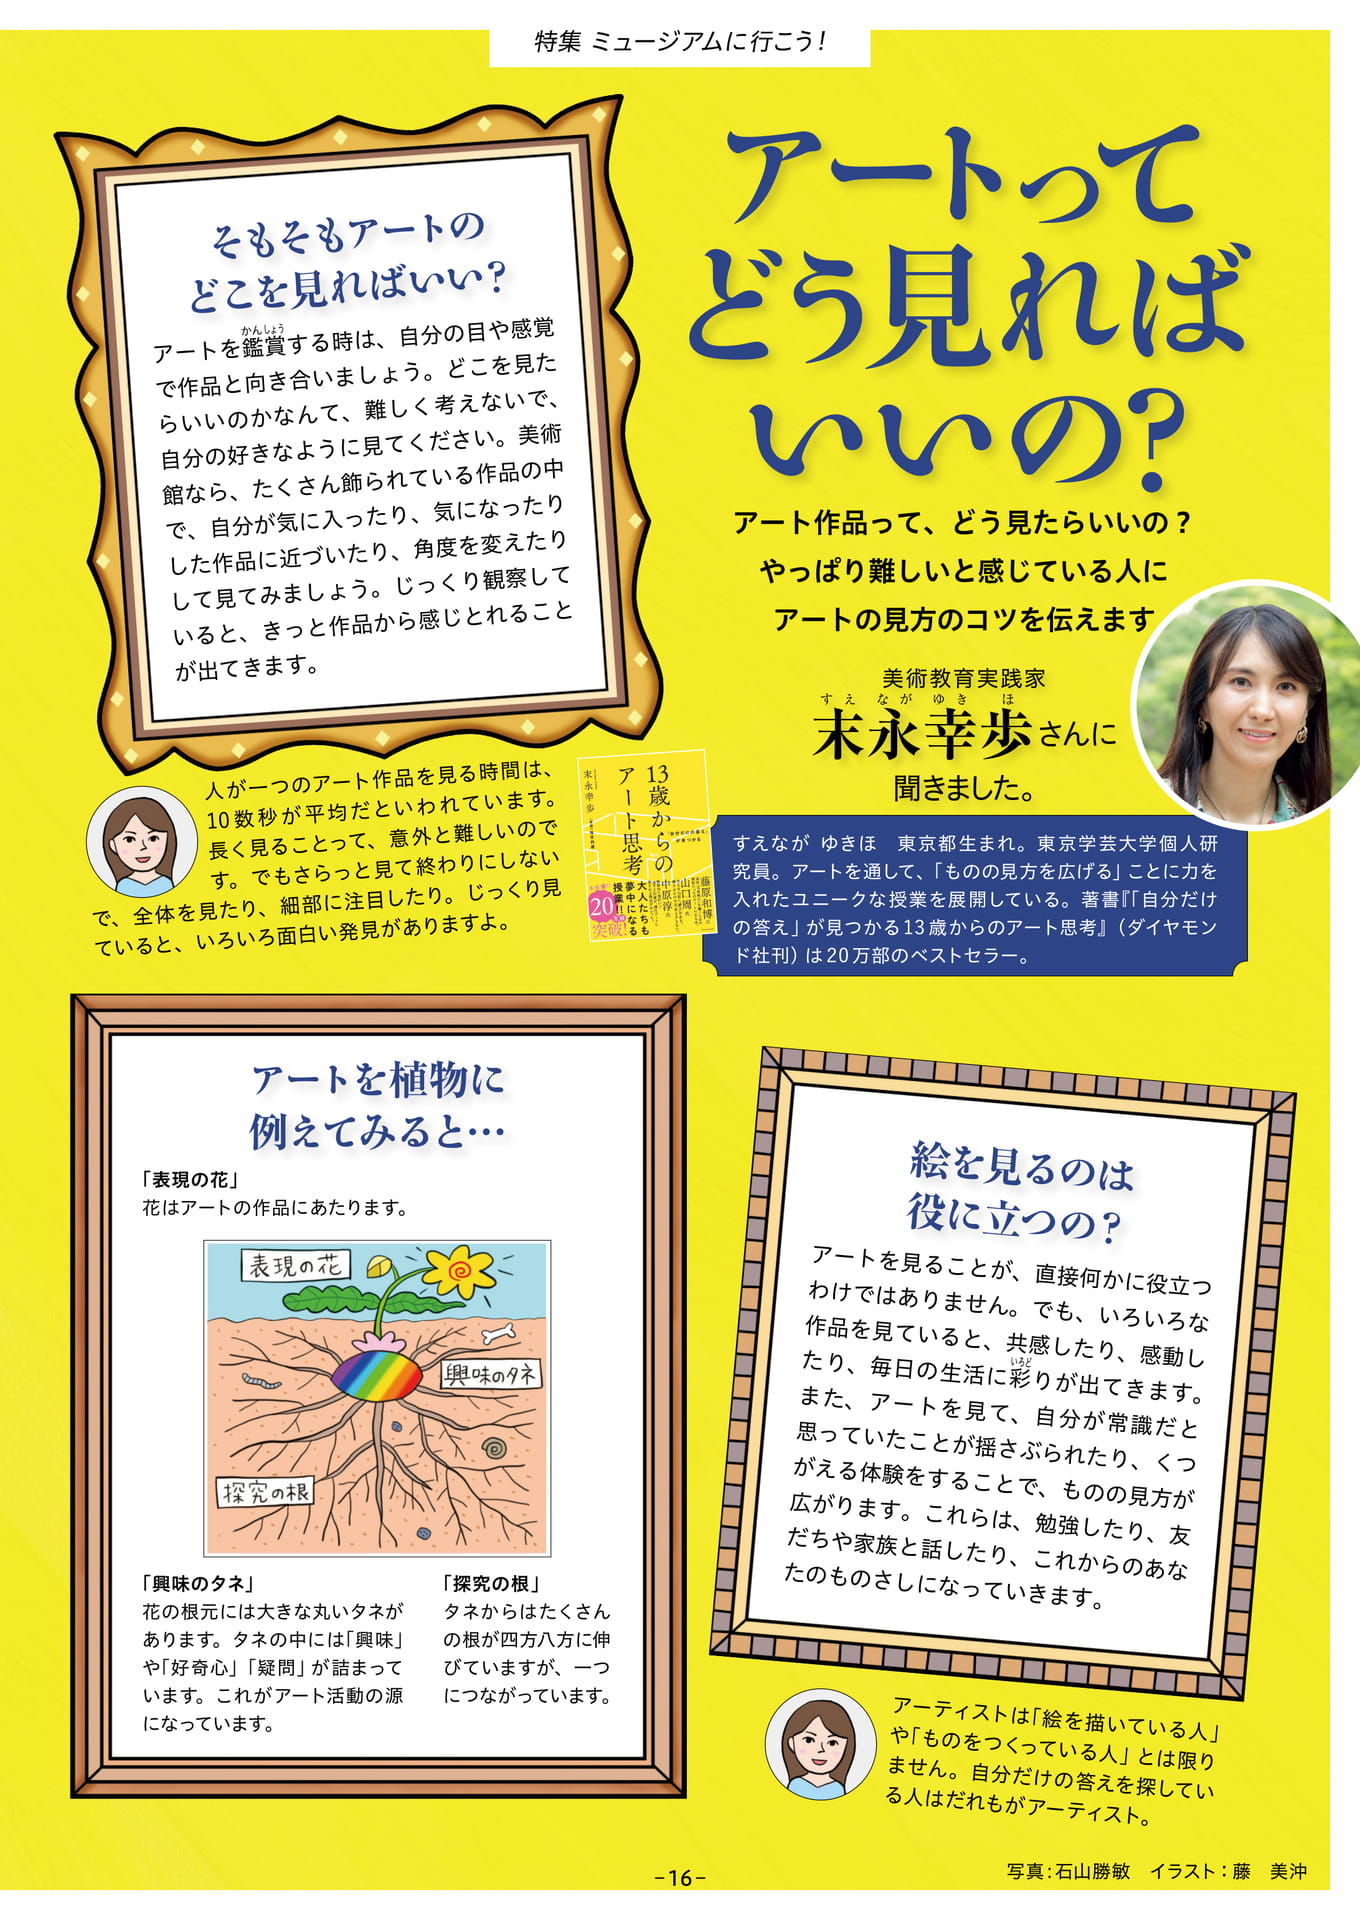 特集 ミュージアムに行こう!
アートって
どう見れば
いいの?
アート作品って、どう見たらいいの？
やっぱり難しいと感じている人に
アートの見方のコツを伝えます
美術教育実践家
すえ なが ゆき ほ
末永幸歩さんに
聞きました。
すえなが ゆきほ　東京都生まれ。東京学芸大学個人研
究員。アートを通して、「ものの見方を広げる」ことに力を
入れたユニークな授業を展開している。著書『「自分だけ
の答え」が見つかる13歳からのアート思考』（ダイヤモン
ド社刊）は20万部のベストセラー。
そもそもアートの
どこを見ればいい?
かんしょう
アートを鑑賞する時は、自分の目や感覚
で作品と向き合いましょう。どこを見た
らいいのかなんて、難しく考えないで、
自分の好きなように見てください。美術
館なら、たくさん飾られている作品の中
で、自分が気に入ったり、気になったり
した作品に近づいたり、角度を変えたり
して見てみましょう。じっくり観察して
いると、きっと作品から感じとれること
が出てきます。
人が一つのアート作品を見る時間は、
10数秒が平均だといわれています。
長く見ることって、意外と難しいので
す。でもさらっと見て終わりにしない
で、全体を見たり、細部に注目したり。じっくり見
ていると、いろいろ面白い発見がありますよ。
13歳からの
アート思考
末永幸歩
「自分だけの答え」
が見つかる
藤原和博氏
山口周氏
中原淳氏
大人たちも
夢中になる
授業!!
20
突破!
アートを植物に
例えてみると…
「表現の花」
花はアートの作品にあたります。
表現の花
興味のタネ
探究の根
「興味のタネ」
花の根元には大きな丸いタネが
あります。タネの中には「興味」
や「好奇心」「疑問」が詰まって
います。これがアート活動の源
になっています。
「探究の根」
タネからはたくさん
の根が四方八方に伸
びていますが、一つ
につながっています。
絵を見るのは
役に立つの?
アートを見ることが、直接何かに役立つ
わけではありません。でも、いろいろな
作品を見ていると、共感したり、感動し
いろど
たり、毎日の生活に彩りが出てきます。
また、アートを見て、自分が常識だと
思っていたことが揺さぶられたり、くつ
がえる体験をすることで、ものの見方が
広がります。これらは、勉強したり、友
だちや家族と話したり、これからのあな
たのものさしになっていきます。
アーティストは「絵を描いている人」
や「ものをつくっている人」とは限り
ません。自分だけの答えを探してい
る人はだれもがアーティスト。
写真：石山勝敏　イラスト：藤　美沖
-16-